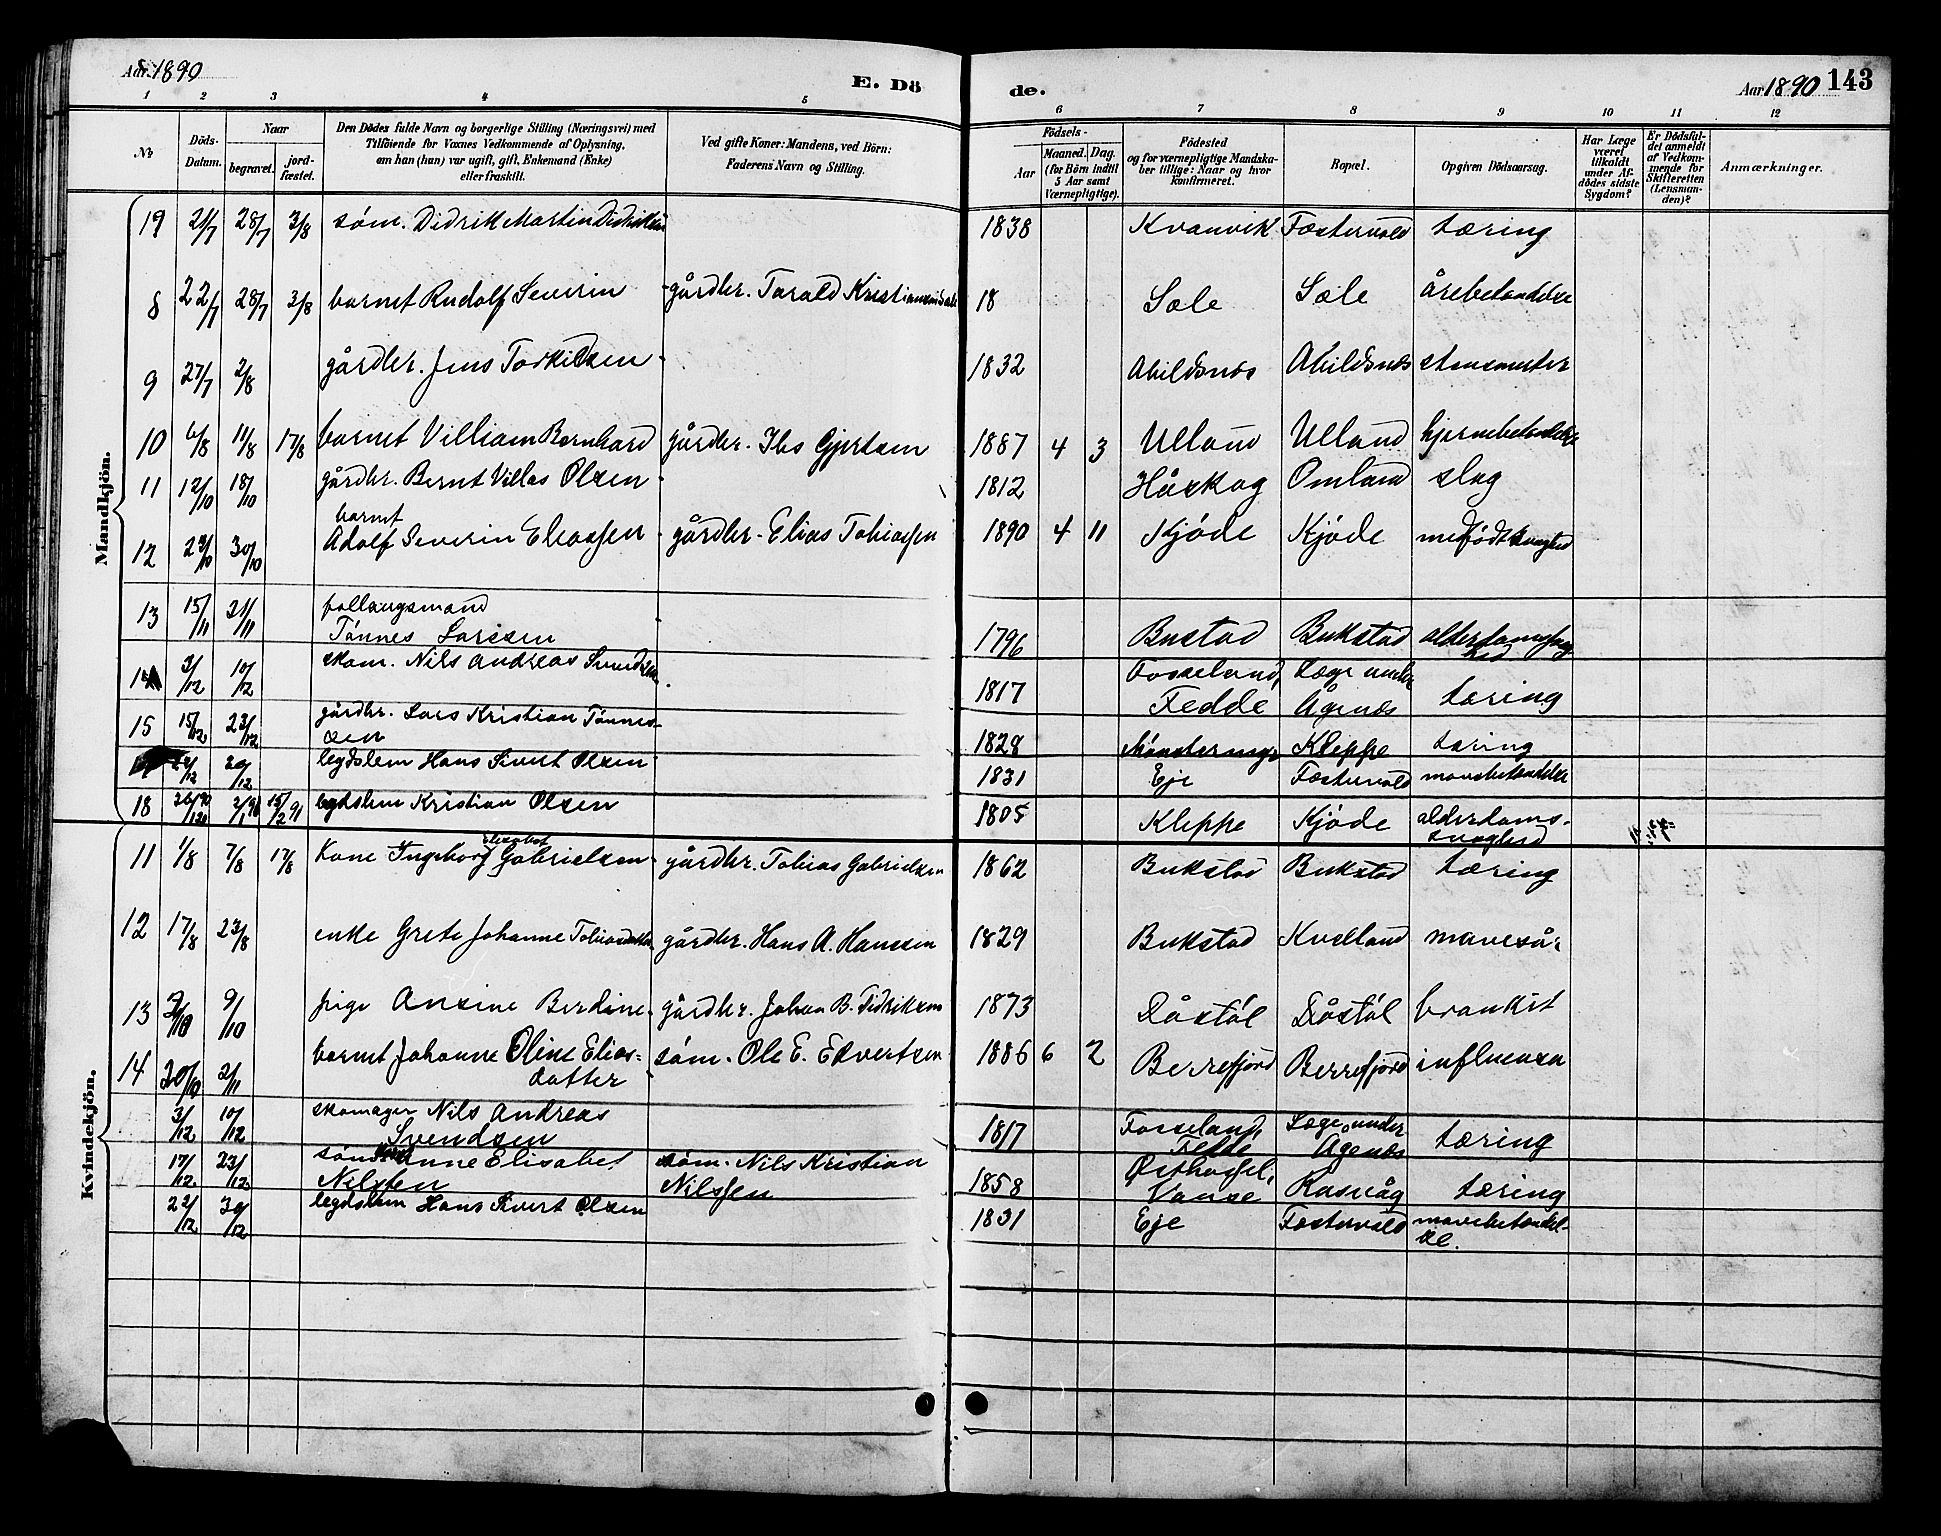 Aar 1890
E. Dö
de.
Aar 1890 143
1 2 3 4 5 6 7 8 9 10 11 12
No
Döds-
Datum.
Naar
begravet.
jord-
fæstet.
Den Dödes fulde Navn og borgerlige Stilling (Næringsvei) med
Tilföiende for Voxnes Vedkommende af Oplysning,
om han (hun) var ugift, gift, Enkemand (Enke)
eller fraskilt.
Ved gifte Koner: Mandens, ved Börn:
Faderens Navn og Stilling.
Födsels-
Aar
Maaned. Dag.
(for Börn indtil
5 Aar samt
Værnepligtige).
Födested
og for værnepligtige Mandska-
ber tillige: Naar og hvor
Konfirmeret.
Bopæl.
Opgiven Dödsaarsag.
Har Læge
været
tilkaldt
under Af-
dödes sidste
Sygdom?
Er Dödsfal-
det anmeldt
af Vedkom-
mende for
Skifteretten
(Lensman-
den)?
Anmærkninger.
Mandkjön.
19 21/7 28/7 3/8 søm. Didrik Martin Didriksen 1838 Kvanvik Fæstervold tæring
8 22/7 28/7 3/8 barnet Rudolf Severin gårdbr. Tarald Kristiansen 18 Sæle Sæle årebetændelse
9 27/7 2/8 gårdbr. Jens Torkildsen 1832 Abildsnæs Abildsnæs
10 6/8 11/8 17/8 barnet Villiam Bernhard gårdbr. Ibs Gjertsen 1887 4 3 Ulland Ulland hjernebetændelse
11 12/10 18/10 gårdbr. Bernt Villas Olsen 1812 Håskog Omland slag
barnet
12 30/10 Adolf Severin Eliassen gårdbr. Elias Tobiassen 1890 4 11 Kjøde Kjøde medfødt svaghed
13 15/11 21/11 føllaugsmand
Tønnes Larssen 1796 Bustad Bukstad alderdomssvag
hed
14 3/12 10/12 skom. Nils Andreas Svendsen 1817 Fosseland, Fedde Læge under Ågenæs tæring
15 15/12 23/12 gårdbr. Lars Kristian Tønnes-
sen 1828 Kleppe tæring
22/12 30/12 legdslem Hans Sivert Olsen 1831 Eje Fæstervold mavebetændelse
18 legdslem Kristian Olsen 1805 Kleppe Kjøde alderdoms-
svaghed
Kvindekjön.
elisabet
11 1/8 7/8 17/8 Kone Ingeborg Gabrielsen gårdbr. Tobias Gabrielsen 1862 Bukstad Bukstad tæring
12 17/8 23/8 enke Grete Johanne Tobiasdatter gårdbr. Hans A. Hanssen 1829 Bukstad Kvelland mavesår
13 9/10 pige Ansine Berdine gårdbr. Johan B. Didriksen 1873 Dåstøl Dåstøl bronkit
14 2/11 barnet Johanne Oline Elias-
datter søm. Ole E. Edvertsen 1886 6 2 Berrefjord Berrefjord influensa
3/12 10/12 skomager Nils Andreas
Svendsen 1817 Fosseland, Fedde Læge under Agenæs tæring
17/12 23/12 Anne Elisabet
Nilssen søm. Nils Kristian
Nilssen 1858 Østhassel, Vanse Rasvåg tæring
22/12 30/12 legdslem Hans Sivert Olsen 1831 Eje Fæstervold mavebetændel-
se.